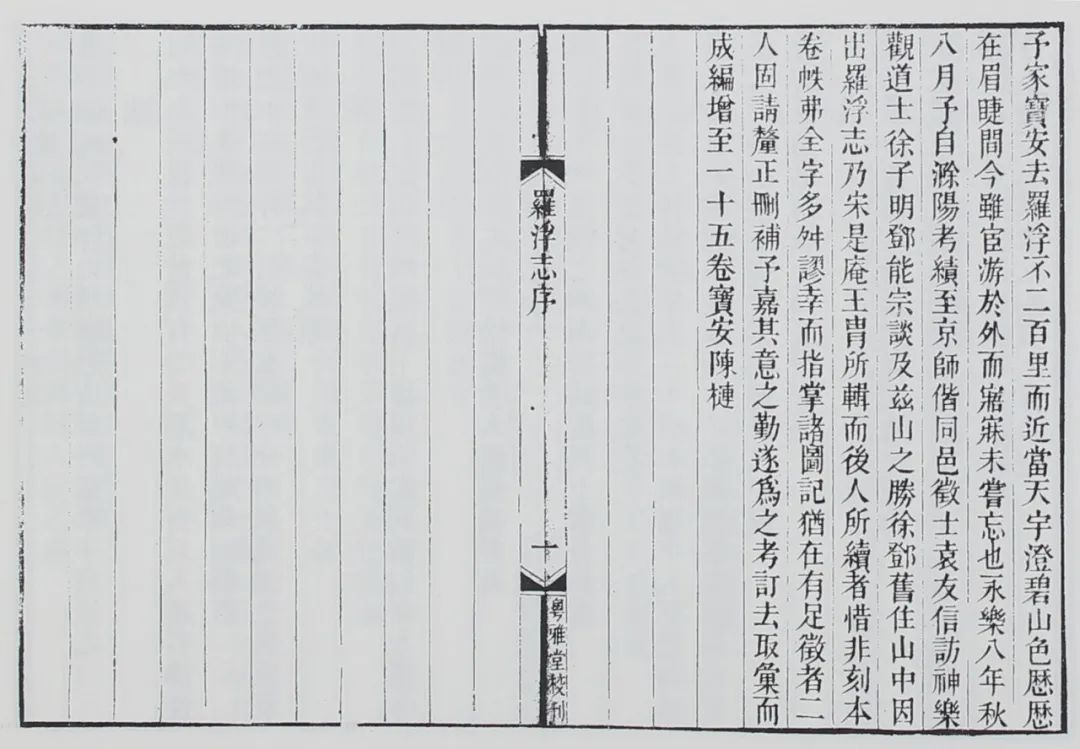 予家寶安去羅浮不二百里而近當天宇澄碧山色歷歷
在眉睫間今雖宦游於外而寤寐未嘗忘也永樂八年秋
八月予自滁陽考績至京師偕同邑徵士袁友信訪神樂
觀道士徐子明鄧能宗談及兹山之勝徐鄧舊住山中因
出羅浮志乃宋是庵王胄所輯而後人所續者惜非刻本
卷帙弗全字多舛謬幸而指掌諸圖記猶在有足徵者二
人固請釐正刪補予嘉其意之勤遂為之考訂去取彙而
成編增至一十五卷寶安陳槤
羅浮志序
一
粤雅堂校刊